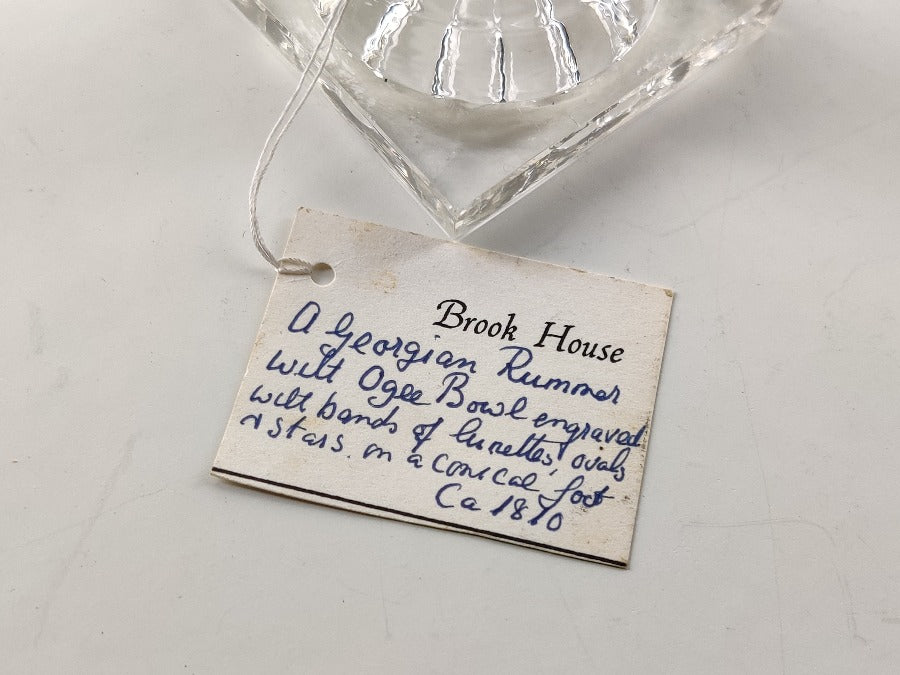 Brook House
A Georgian Rummer
with Ogee Bowl engraved
with bands of lunettes, ovals
& stars. on a conical foot
Ca 1810